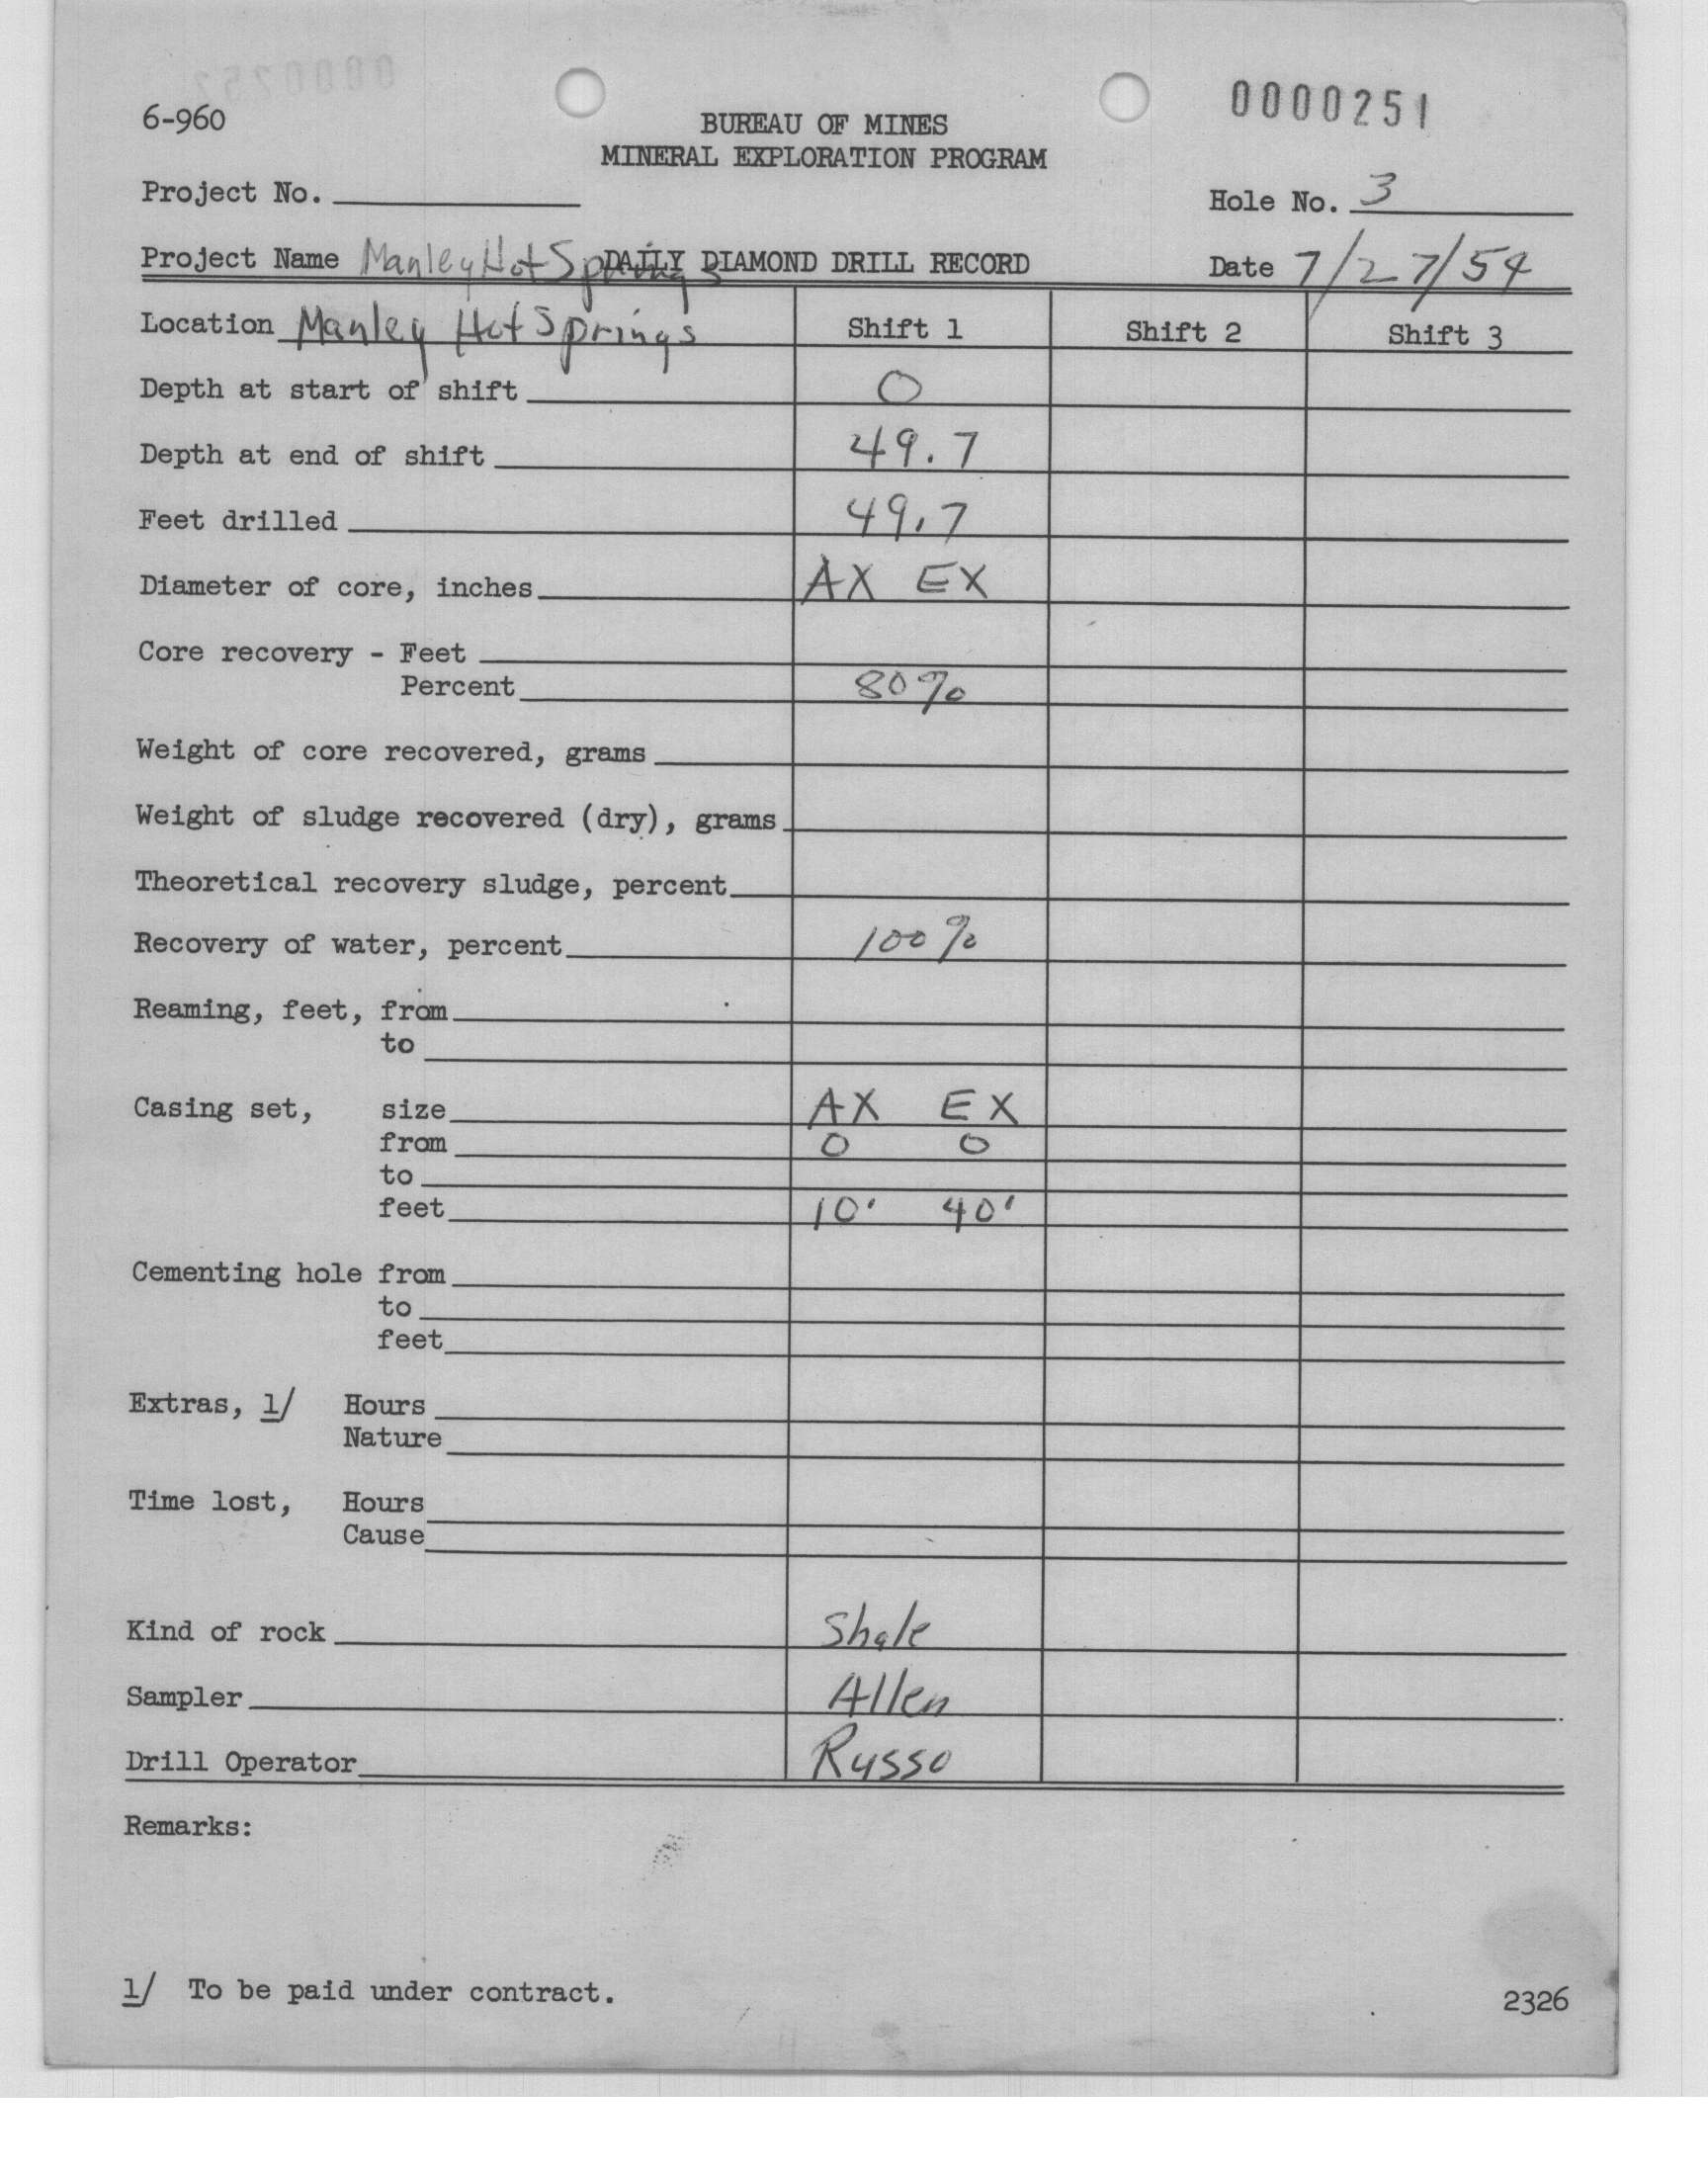 0000251
6-960
BUREAU OF MINES
MINERAL EXPLORATION PROGRAM
Project No.
Hole No. 3
Project Name Manley Hot Springs DAILY DIAMOND DRILL RECORD Date 7/27/54
Location Manley Hot Springs Shift 1 Shift 2 Shift 3
Depth at start of shift 0
Depth at end of shift 49.7
Feet drilled 49.7
Diameter of core, inches AX EX
Core recovery - Feet
Percent 80%
Weight of core recovered, grams
Weight of sludge recovered (dry), grams
Theoretical recovery sludge, percent
Recovery of water, percent 100%
Reaming, feet, from
to
Casing set, size AX EX
from 0 0
to
feet 10' 40'
Cementing hole from
to
feet
Extras, 1/ Hours
Nature
Time lost, Hours
Cause
Kind of rock Shale
Sampler Allen
Drill Operator Russo
Remarks:
1/ To be paid under contract.
2326